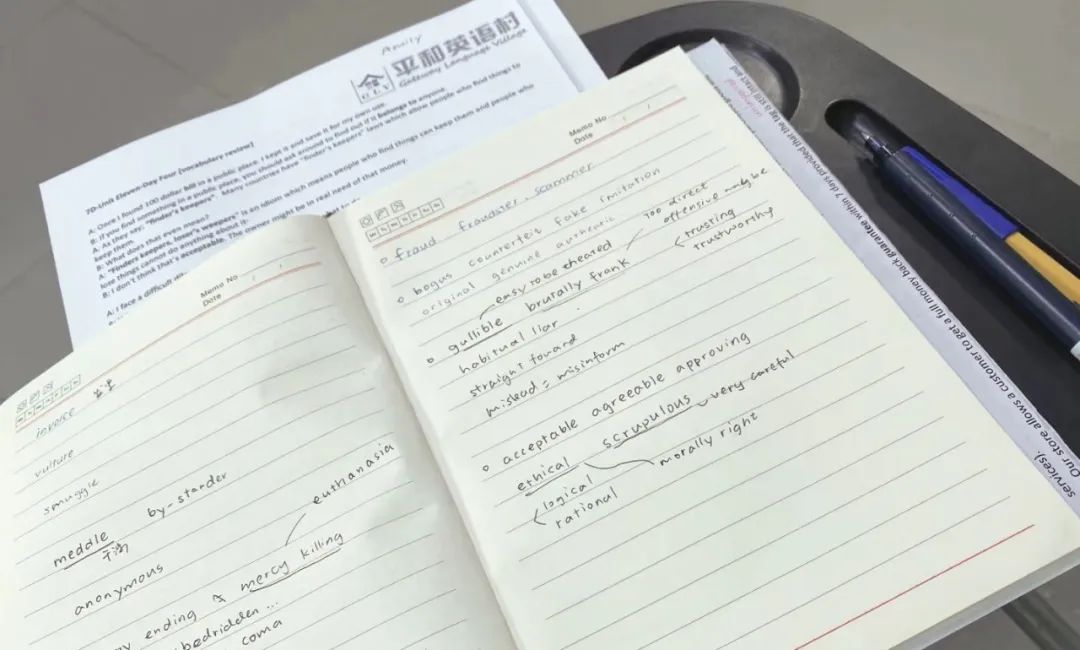 Amily
平和英语村
GLV Gateway Language Village
7D-Unit Eleven-Day Four [vocabulary review]
A: Once I found 100 dollar bill in a public place. I kept it and save it for my own use.
B: If you find something in a public place, you should ask around to find out if it belongs to anyone.
A: As they say, "finder's keepers". Many countries have "finder's keepers" laws which allow people who find things to
keep them.
B: What does that even mean?
A: "Finders keepers, loser's weepers" is an idiom which means people who find things can keep them and people who
lose things cannot do anything about it.
B: I don't think that's acceptable. The owner might be in real need of that money.
A: I face a difficult
Memo No
Date
invoice
vulture
smuggle
meddle by-stander
干涉
anonymous
euthanasia
ending mercy killing
bedridden ...
coma
Memo No
Date
fraud fraudster, scammer
bogus counterfeit fake imitation
original genuine authentic
too direct
offensive maybe
easy to be cheated
gullible brurally frank
trusting
trustworthy
habitual liar
straight foward
mislead = misinform
acceptable agreeable approving
ethical scrupulous very careful
morally right
logical
rational
the tag is still intact and
Our store allows a customer to get a full money back guarantee within 7 days provided that
services).